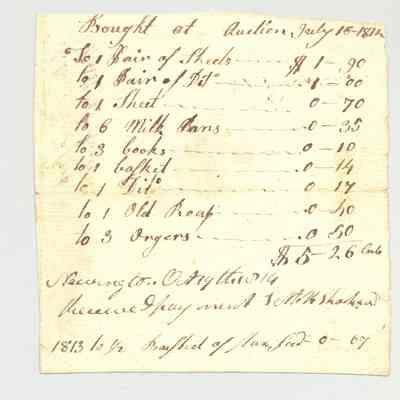 Bought at Auction July 18 1814
To 1 Pair of Sheets $ 1-90
to 1 Pair of Dito 1-00
to 1 Sheet 0-70
to 6 Milk Pans 0-35
to 3 books 0-10
to 1 basket 0-14
to 1 Dito 0-17
to 1 Old 0-40
to 3 0-50
$ 5-26 Cents
Newington Oct 19th 1814
Received payment
1813 to 1/2 Bushel of flax Seed 0-67